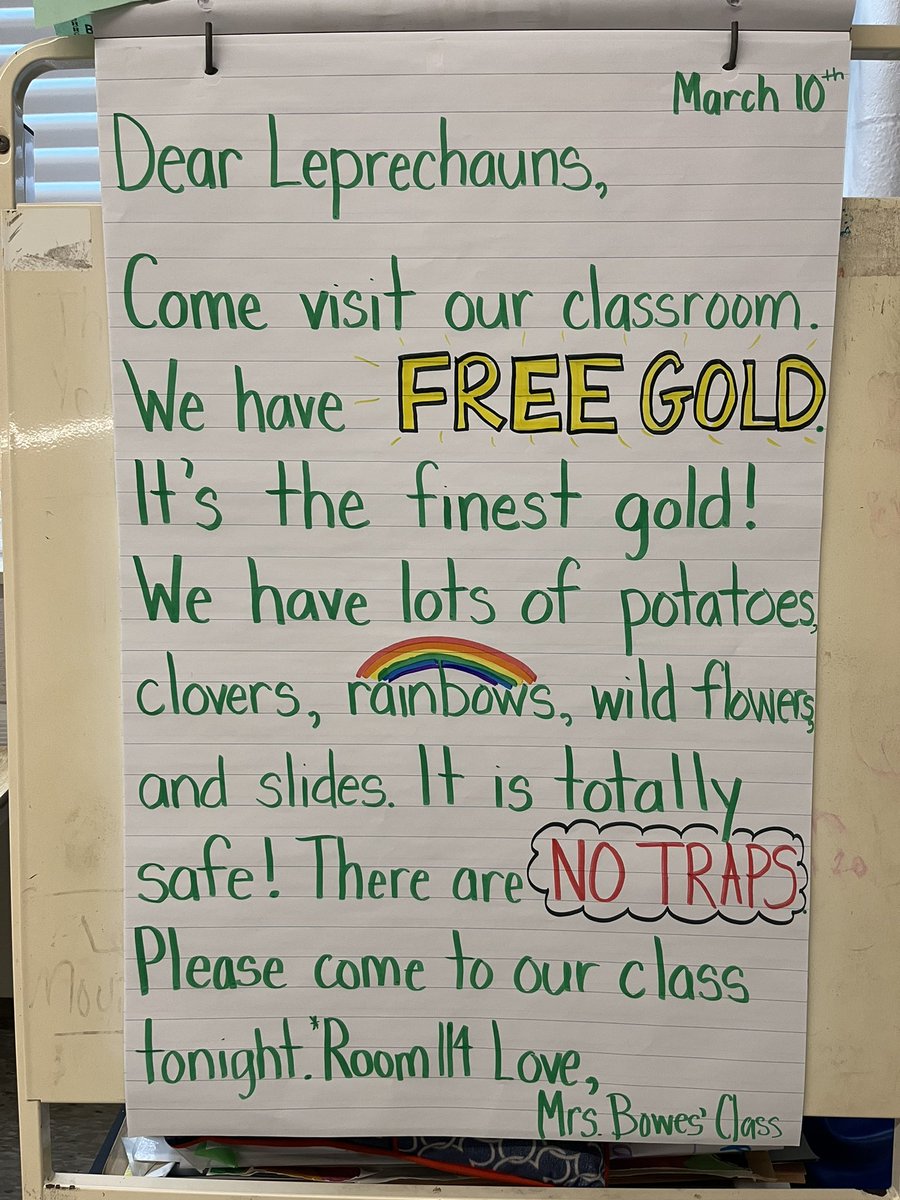 March 10th
Dear Leprechauns,
Come visit our classroom.
We have FREE GOLD.
It's the finest gold!
We have lots of potatoes,
clovers, rainbows, wild flowers,
and slides. It is totally
safe! There are NO TRAPS.
Please come to our class
tonight. *Room 114 Love,
Mrs. Bowes' Class